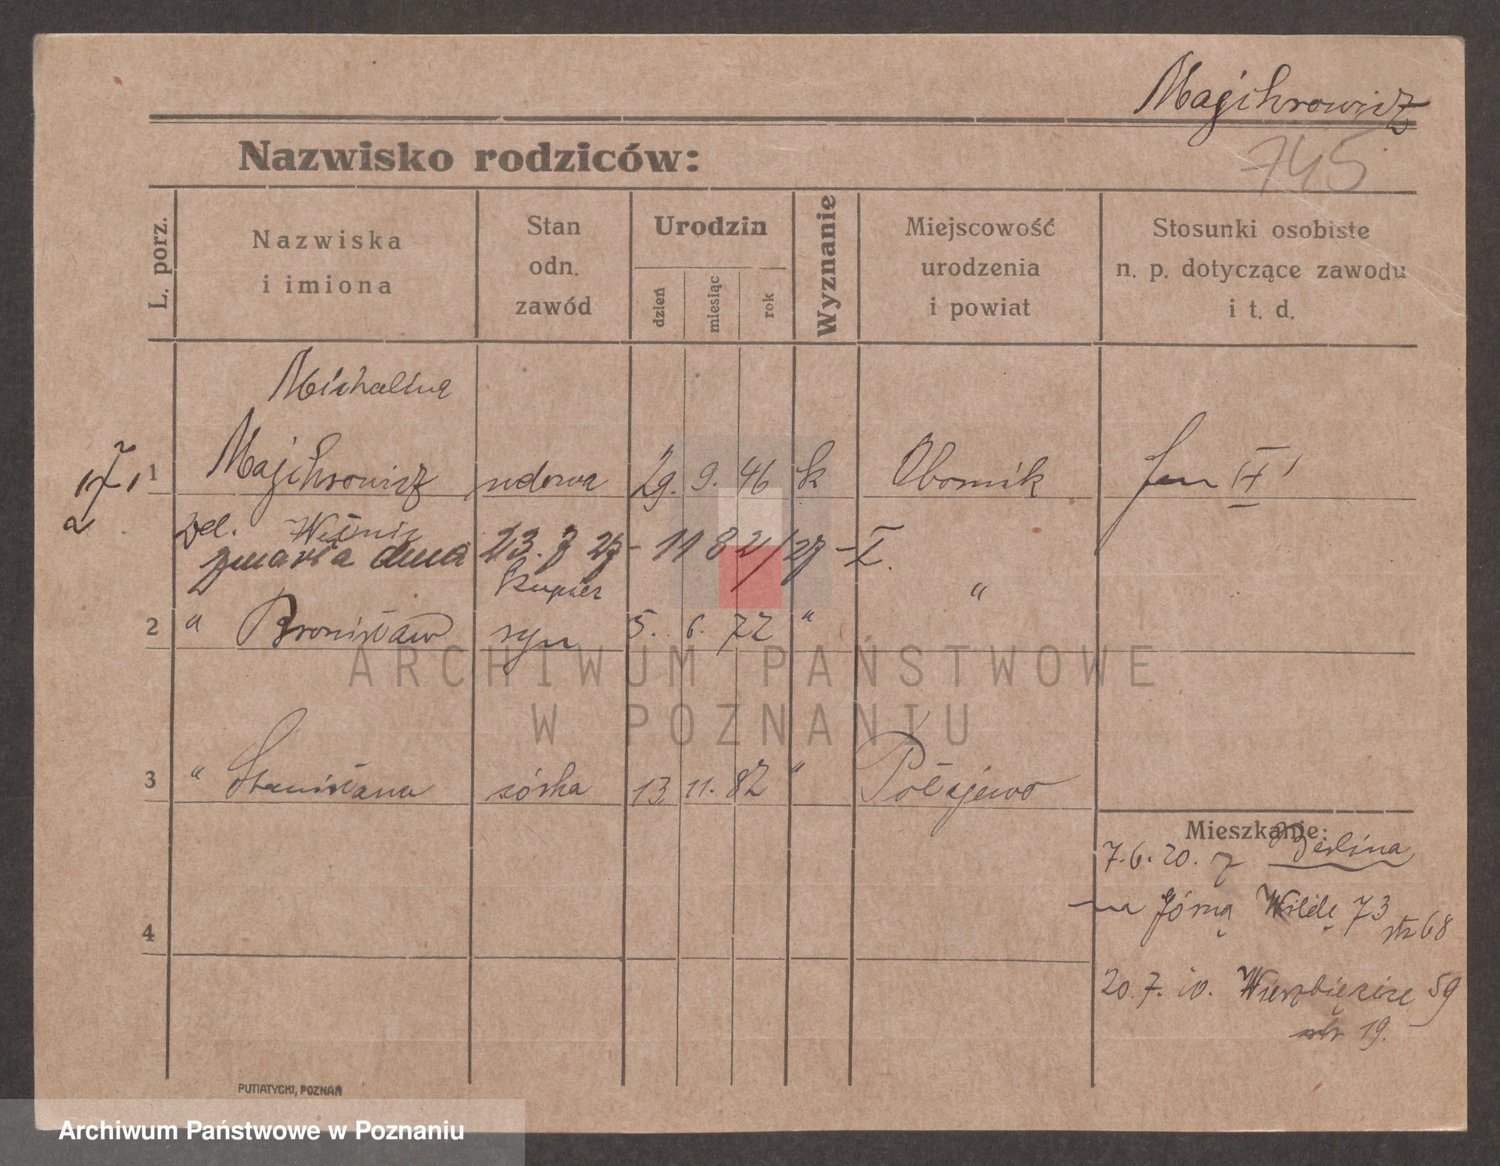 Majchrowicz
745
Nazwisko rodziców:
L. porz.
Nazwiska
i imiona
Stan
odn.
zawód
Urodzin
dzień
miesiąc
rok
Wyznanie
Miejscowość
urodzenia
i powiat
Stosunki osobiste
n. p. dotyczące zawodu
i t. d.
Michalina
1 Majchrowicz wdowa 29. 9. 46 k Obornik
zmarła dnia 23. 7 27 - 11 8 21/27 - I.
kupiec
2 " Bronisław syn 5. 6. 72 " "
3 " Stanisława córka 13. 11. 82 " Połajewo
Mieszkanie:
7.6.20. z Berlina
na Górną Wildę 73
str 68
4
20.7.20. Wierzbięcice 59
19.
PUTIATYCKI, POZNAŃ
ARCHIWUM PAŃSTWOWE
W POZNANIU
Archiwum Państwowe w Poznaniu